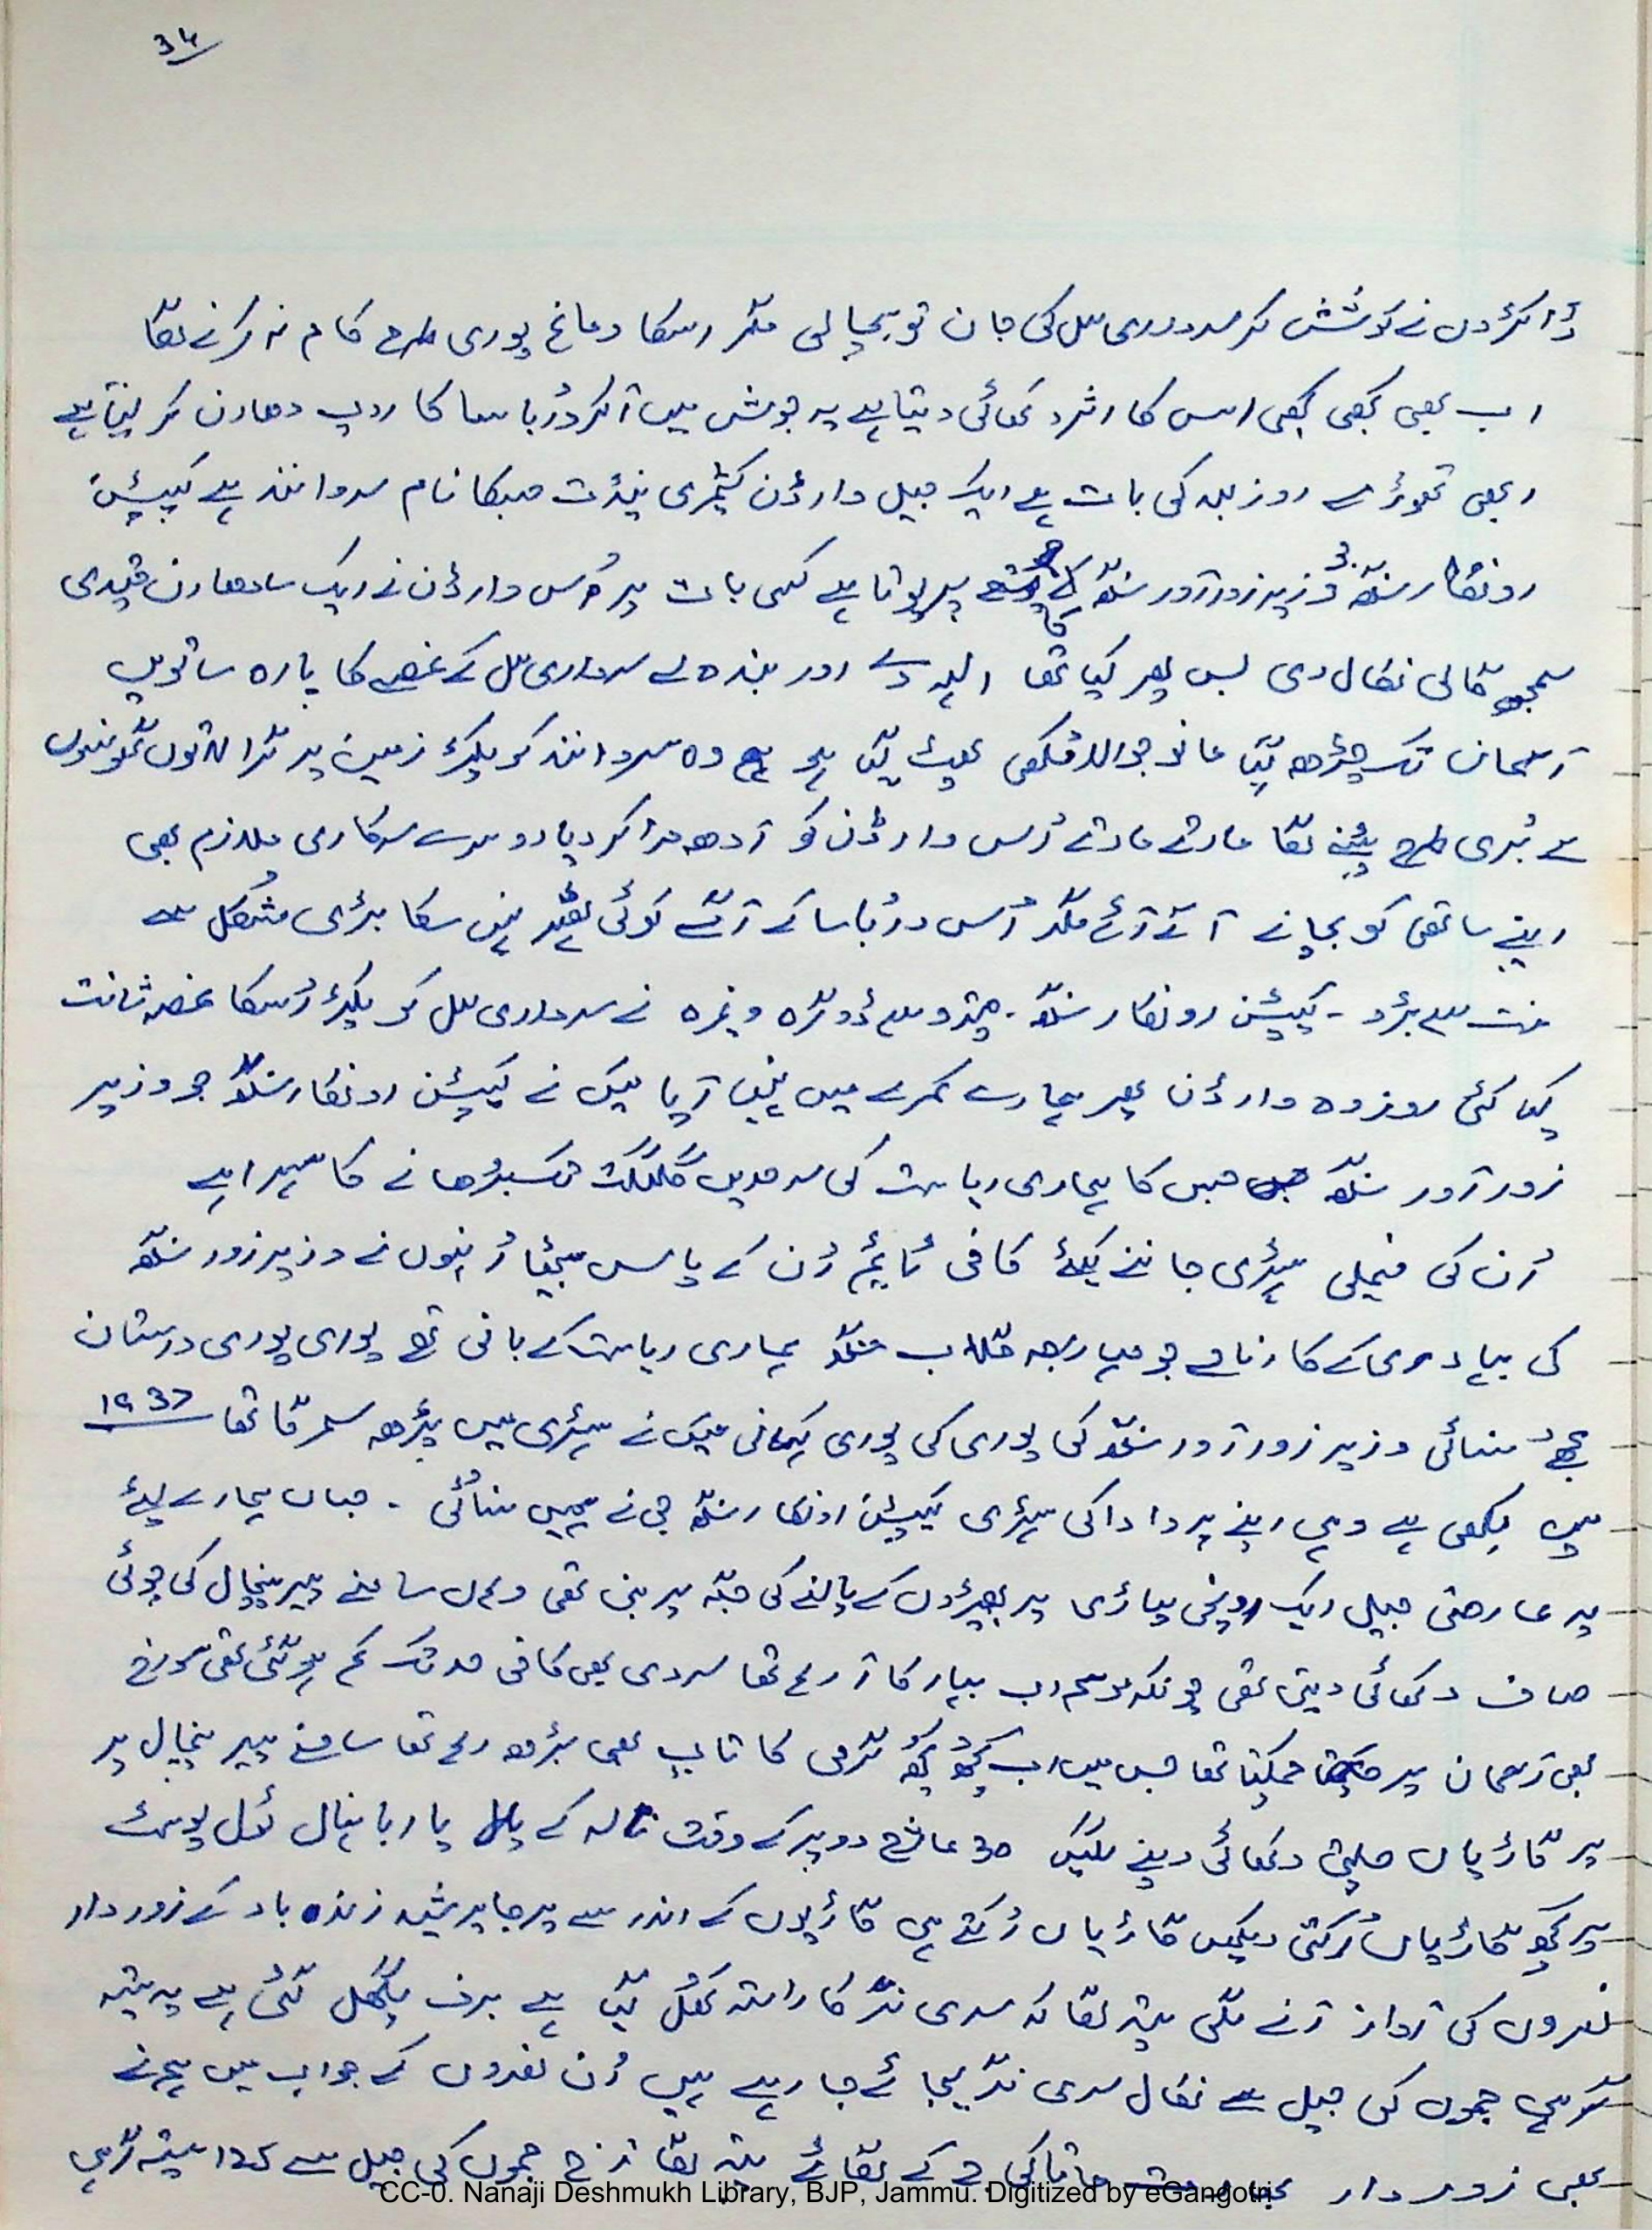 34
ڈاکڑوں نے کوشش کر سرداری لال کی جان تو بچا لی مگر اسکا دماغ پوری طرح کام نہ کرنے لگا
اب بھی کبھی کبھی اس کا اثر دکھائی دیتا ہے یہ جوش میں آکر دُرباسا کا روپ دھارن کر لیتا ہے
ابھی تھوڑے روز پہلے کی بات ہے ایک جیل وارڈن کشمیری پنڈت جسکا نام سروانند ہے کیپٹن
اونکار سنگھ وزیر زورآور سنگھ کا پوتا ہے کسی بات پر اُس وارڈن نے ایک سادھارن قیدی
سمجھ گالی نکال دی بس پھر کیا تھا اللہ دے اور بندہ لے سرداری لال کے غصے کا پارہ ساتویں
آسمان تک چڑھ گیا مانو جوالامکھی پھٹ گیا ہو وہ سروانند کو پکڑ زمین پر گرا لاتوں گھونسوں
سے بُری طرح پیٹنے لگا مارتے مارتے اُس وارڈن کو آدھ مرا کر دیا دوسرے سرکاری ملازم بھی
اپنے ساتھی کو بچانے آگے آئے مگر اُس دُرباسا کے آگے کوئی ٹھہر نہیں سکا بڑی مشکل سے
کیپٹن اونکار سنگھ - ڈوگرہ وغیرہ نے سرداری لال کو پکڑ اُسکا غصہ شانت
کیا کئی روز وہ وارڈن پھر ہمارے کمرے میں نہیں آیا میں نے کیپٹن اونکار سنگھ جو وزیر
زورآور سنگھ جس کا ہماری ریاست کی سرحدیں گلگت تک بڑھانے کا سہرا ہے
اُن کی فیملی ہسٹری جاننے کیلئے کافی ٹائیم اُن کے پاس بیٹھا اُنہوں نے وزیر زور سنگھ
کی بہادری کے کارنامے جو مہاراجہ گلاب سنگھ ہماری ریاست کے بانی تھے پوری پوری داستان
مجھے سنائی وزیر زورآور سنگھ کی پوری کی پوری کہانی میں نے ہسٹری میں پڑھ تھا 1937
میں لکھی ہے وہی اپنے پردادا کی ہسٹری کیپٹن اونکار سنگھ جی نے ہمیں سنائی ۔ جہاں ہمارے لیئے
یہ عارضی جیل ایک اونچی پہاڑی پر بھیڑوں کے پالنے کی جگہ پر بنی تھی وہاں سامنے پیر پنچال کی چوٹی
صاف دکھائی دیتی تھی چونکہ موسم اب بہار کا آ رہا تھا سردی بھی کافی حد تک کم ہو گئی تھی سورج
بھی آسمان پر چمکتا تھا جس میں اب کچھ کچھ گرمی کا تاپ بھی بڑھ رہا تھا سامنے پیر پنچال پر
پر گاڑیاں چلتی دکھائی دینے لگیں 30 مارچ دوپہر کے وقت نالہ کے پار بانہال ٹول پوسٹ
پر کچھ گاڑیاں رُکتی دیکھیں گاڑیاں رُکتے ہی گاڑیوں کے اندر سے پرجا پریشد زندہ باد کے زوردار
نعروں کی آواز آنے لگی پتہ لگا کہ سری نگر کا راستہ کھُل گیا ہے برف پگھل گئی ہے یہ
جموں کی جیل سے نکال سری نگر لیجائے جا رہے ہیں اُن نعروں کے جواب میں ہم نے
بھی زوردار بھارت ماتا کی جے کے لگائے پتہ لگا آج جموں کی جیل سے 125 ستیہ گرہی
CC-0. Nanaji Deshmukh Library, BJP, Jammu. Digitized by eGangotri